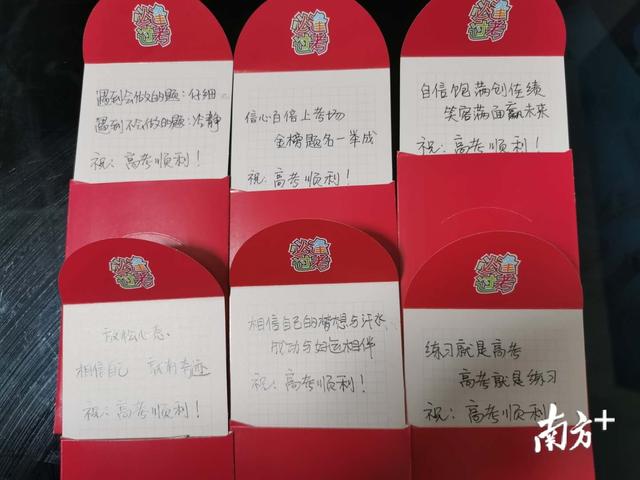 逢考必过
遇到会做的题：仔细
遇到不会做的题：冷静
祝：高考顺利！
逢考必过
信心百倍上考场
金榜题名一举成
祝：高考顺利！
逢考必过
自信饱满创佳绩
笑容满面赢未来
祝：高考顺利！
逢考必过
放松心态、
相信自己 就有奇迹
祝：高考顺利！
逢考必过
相信自己的梦想与汗水
成功与好运相伴
祝：高考顺利！
逢考必过
练习就是高考
高考就是练习
祝：高考顺利！
南方+